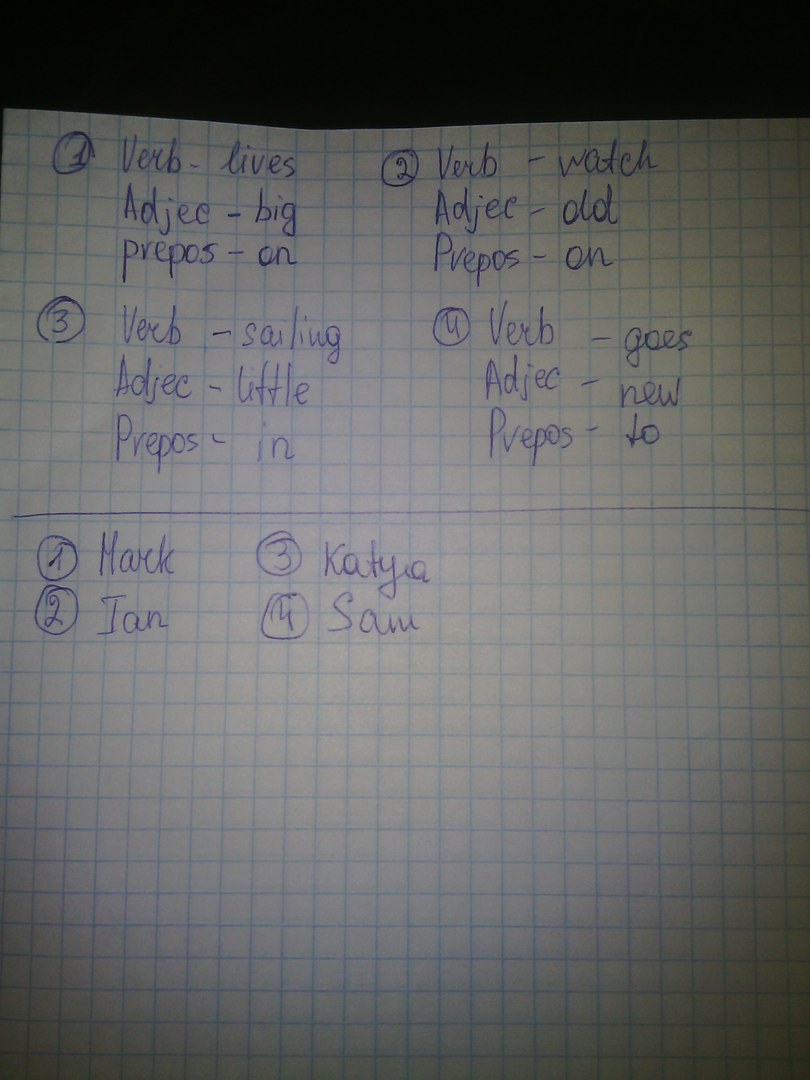 ① Verb - lives
Adjec - big
prepos - on
② Verb - watch
Adjec - old
Prepos - on
③ Verb - sailing
Adjec - little
Prepos - in
④ Verb - goes
Adjec - new
Prepos - to
① Mark
② Ian
③ Katyia
④ Sam